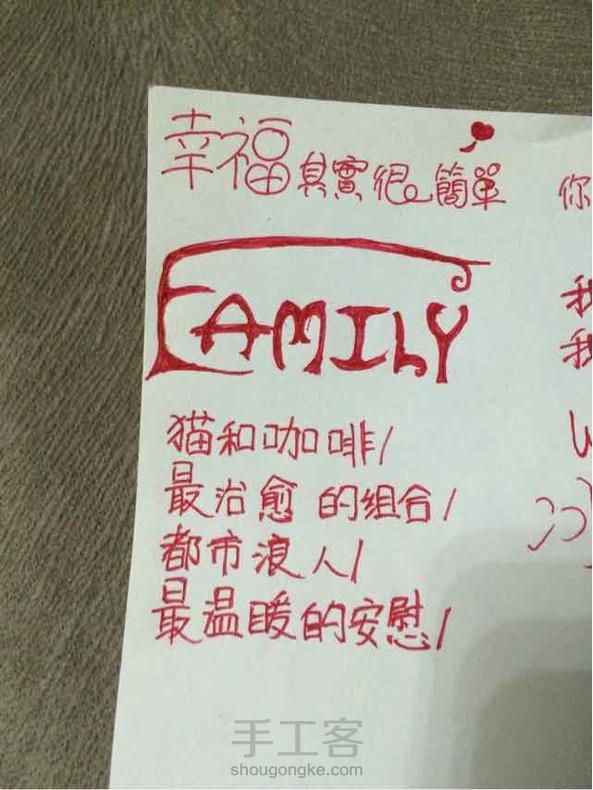 幸福其實很簡單
你
FAMILY
我
我
猫和咖啡/
最治愈的组合/
都市浪人/
最温暖的安慰/
手工客
shougongke.com